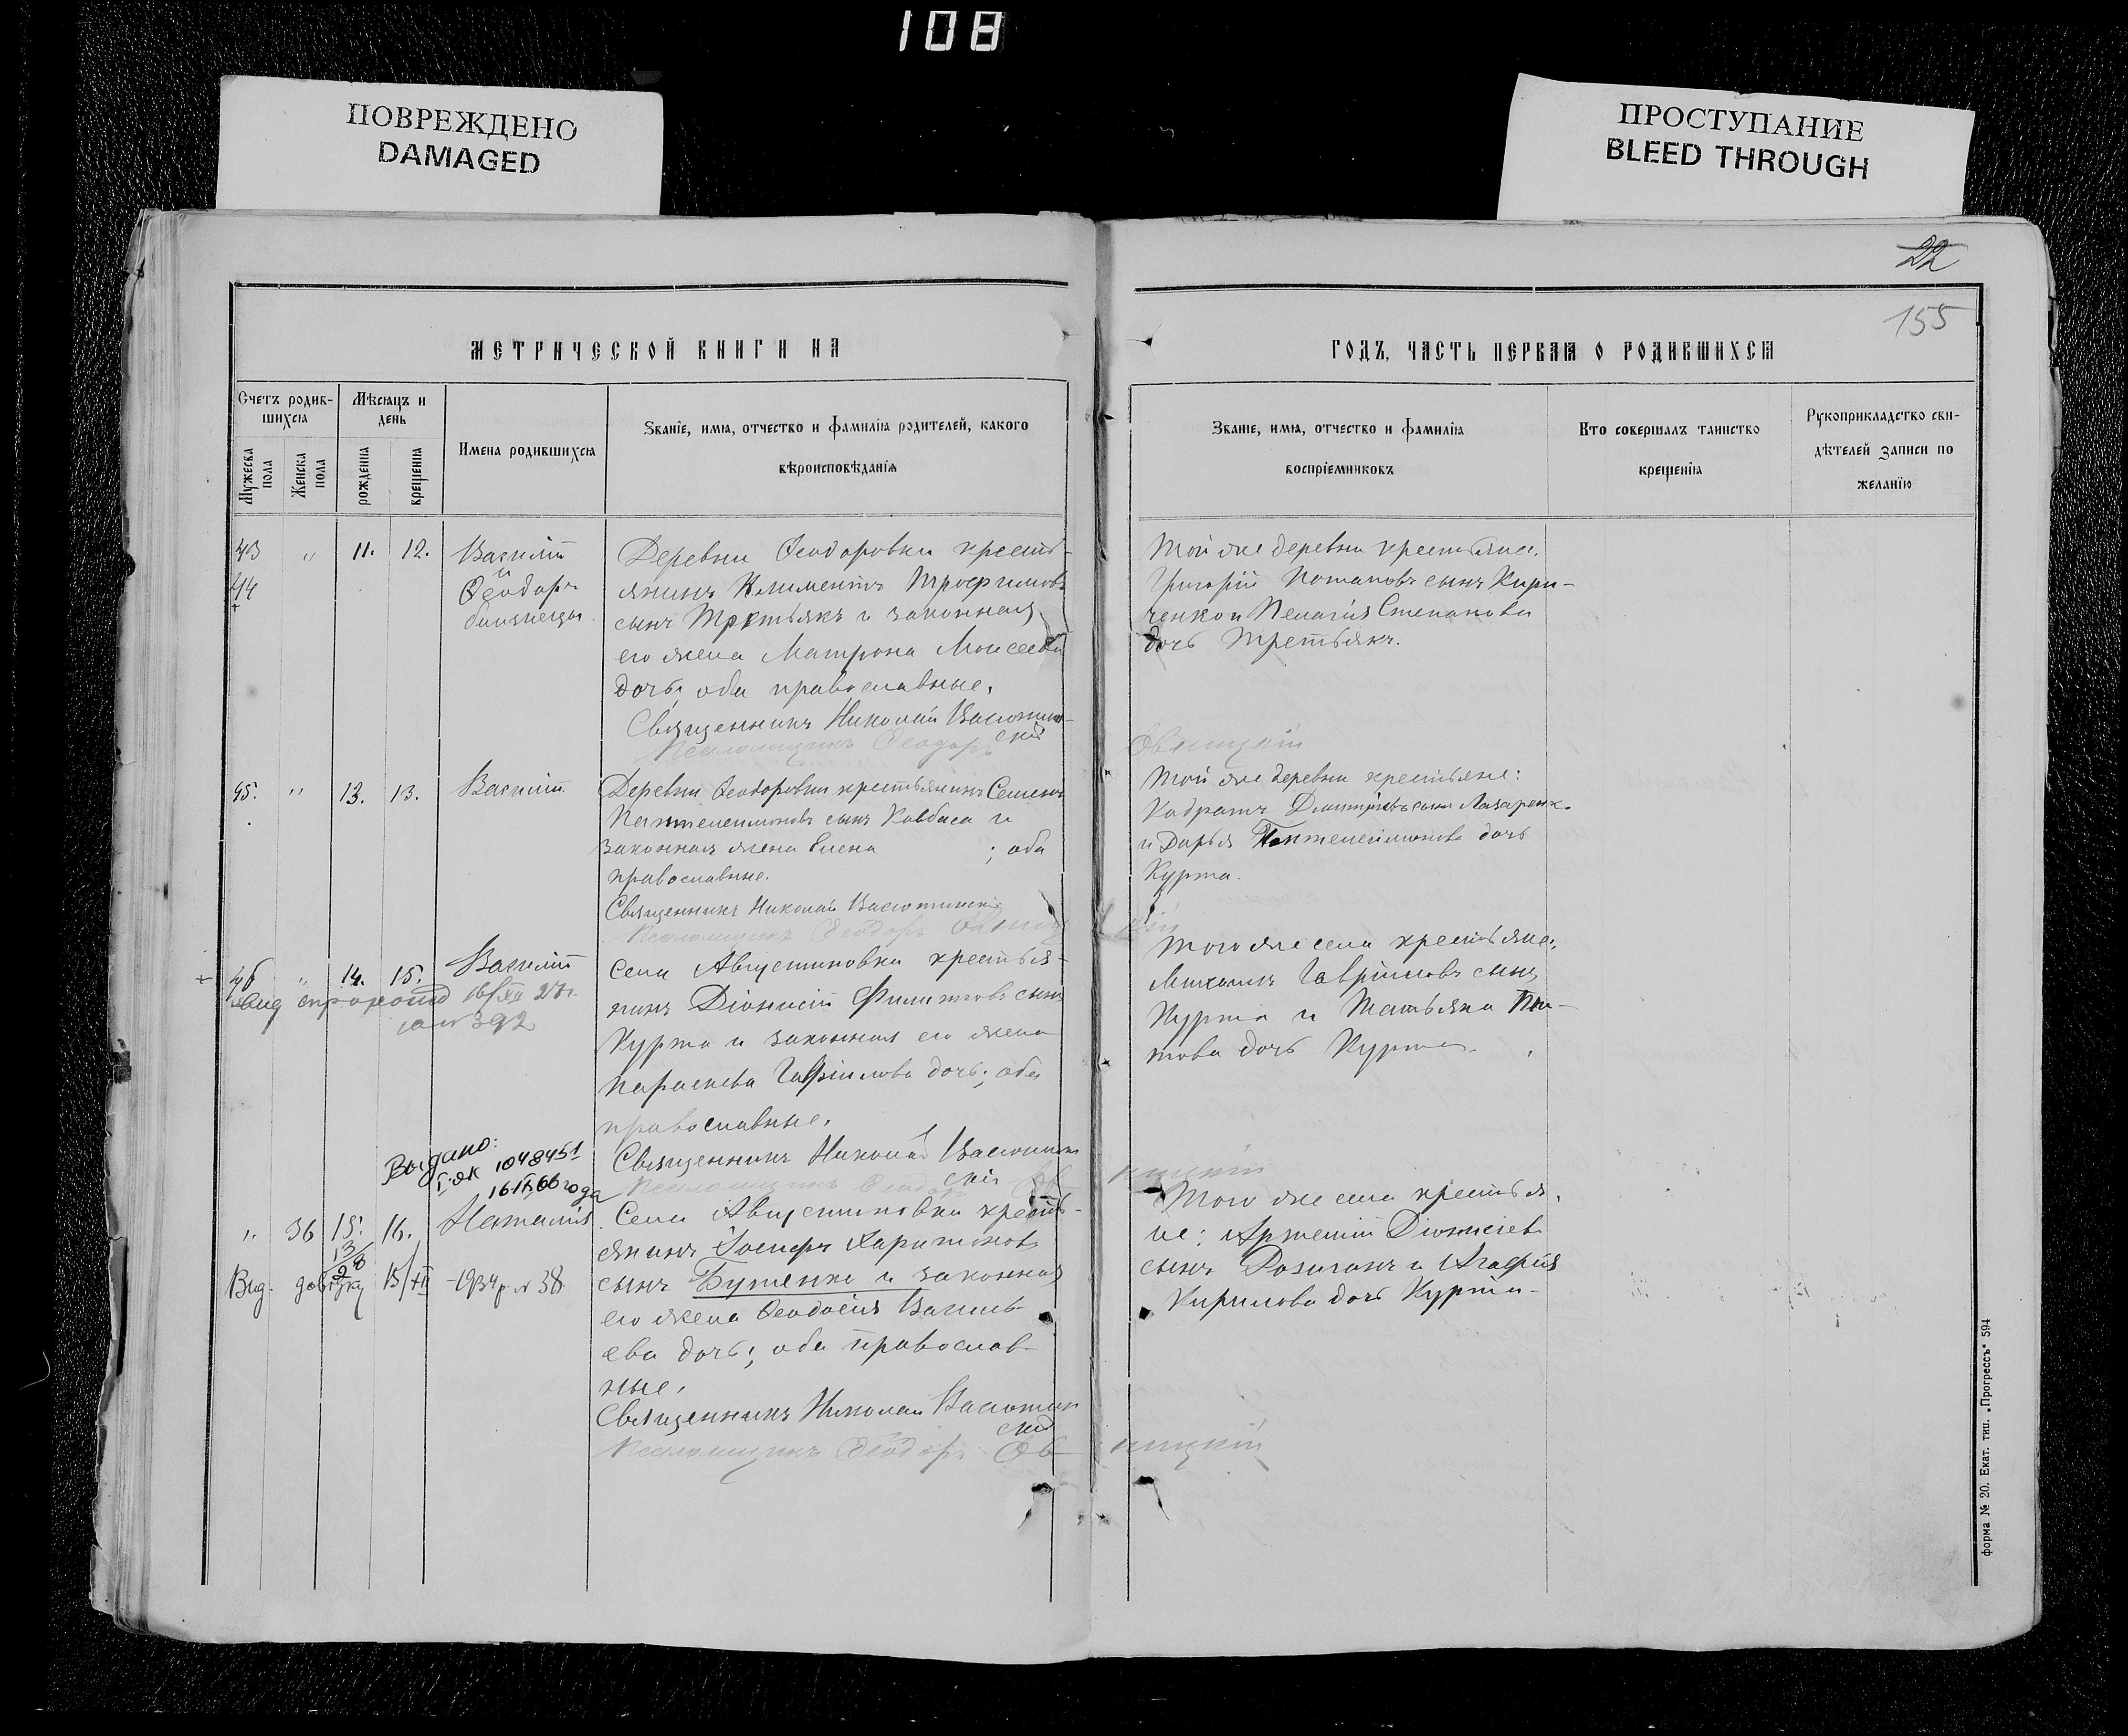 108
ПОВРЕЖДЕНО
DAMAGED
ПРОСТУПАНИЕ
BLEED THROUGH
22
155
МЕТРИЧЕСКОЙ КНИГИ НА
ГОДЪ, ЧАСТЬ ПЕРВАЯ О РОДИВШИХСЯ
Счетъ родив-
шихся
Мѣсяцъ и
день
Мужеска
пола
Женска
пола
рожденія
крещенія
Имена родившихся
Званіе, имя, отчество и фамилія родителей, какого
вѣроисповѣданія
Званіе, имя, отчество и фамилія
воспріемниковъ
Кто совершалъ таинство
крещенія
Рукоприкладство сви-
дѣтелей записи по
желанію
43 " 11. 12. Василій
и
44 Ѳеодоръ
близнецы
Деревни Ѳеодоровки кресть-
янинъ Климентъ Трофимовъ
сынъ Третьякъ и законная
его жена Матрона Моисеева
дочь; оба православные.
Священникъ Николай Васютин-
скій
Псаломщикъ Ѳеодоръ
Той же деревни крестьяне.
Григорій Потаповъ сынъ Кири-
ченко и Пелагія Степанова
дочь Третьякъ.
45. " 13. 13. Василій
Деревни Ѳеодоровки крестьянинъ Семенъ
Пантелеимоновъ сынъ Ковбаса и
законная жена Елена ; оба
православные.
Священникъ Николай Васютинскій
Псаломщикъ Ѳеодоръ
Той же деревни крестьяне:
Кодратъ Димитріевъ сынъ Лазаренк.
и Дарья Пантелеимонова дочь
Курта.
46 " 14. 15. Василій
16/XII 27г.
за № 392
Села Августиновки крестья-
нинъ Діонисій Филиповъ сынъ
Курта и законная его жена
Параскева Гавріилова дочь; оба
православные.
Священникъ Николай Васютин
скій
Псаломщикъ Ѳеодоръ
Того же села крестьяне:
Михаилъ Гавріиловъ сынъ
Курта и Татьяна Ти-
това дочь Курта.
Выдано:
I-ЯК 1048451
16.IX.66 года
" 36 15. 16. Наталія
13/8
Вид. довідку 15/XII - 1934 р. № 38
Села Августиновки кресть-
янинъ Іосифъ Харитоновъ
сынъ Бутенко и законная
его жена Ѳеодосія Василь-
ева дочь; оба православ-
ные.
Священникъ Николай Васютин
скій
Псаломщикъ Ѳеодоръ
Того же села крестья-
не: Артемій Діонисіевъ
сынъ и Агафія
Кирилова дочь Курта.
форма № 20. Екат. тип. „Прогрессъ" 594